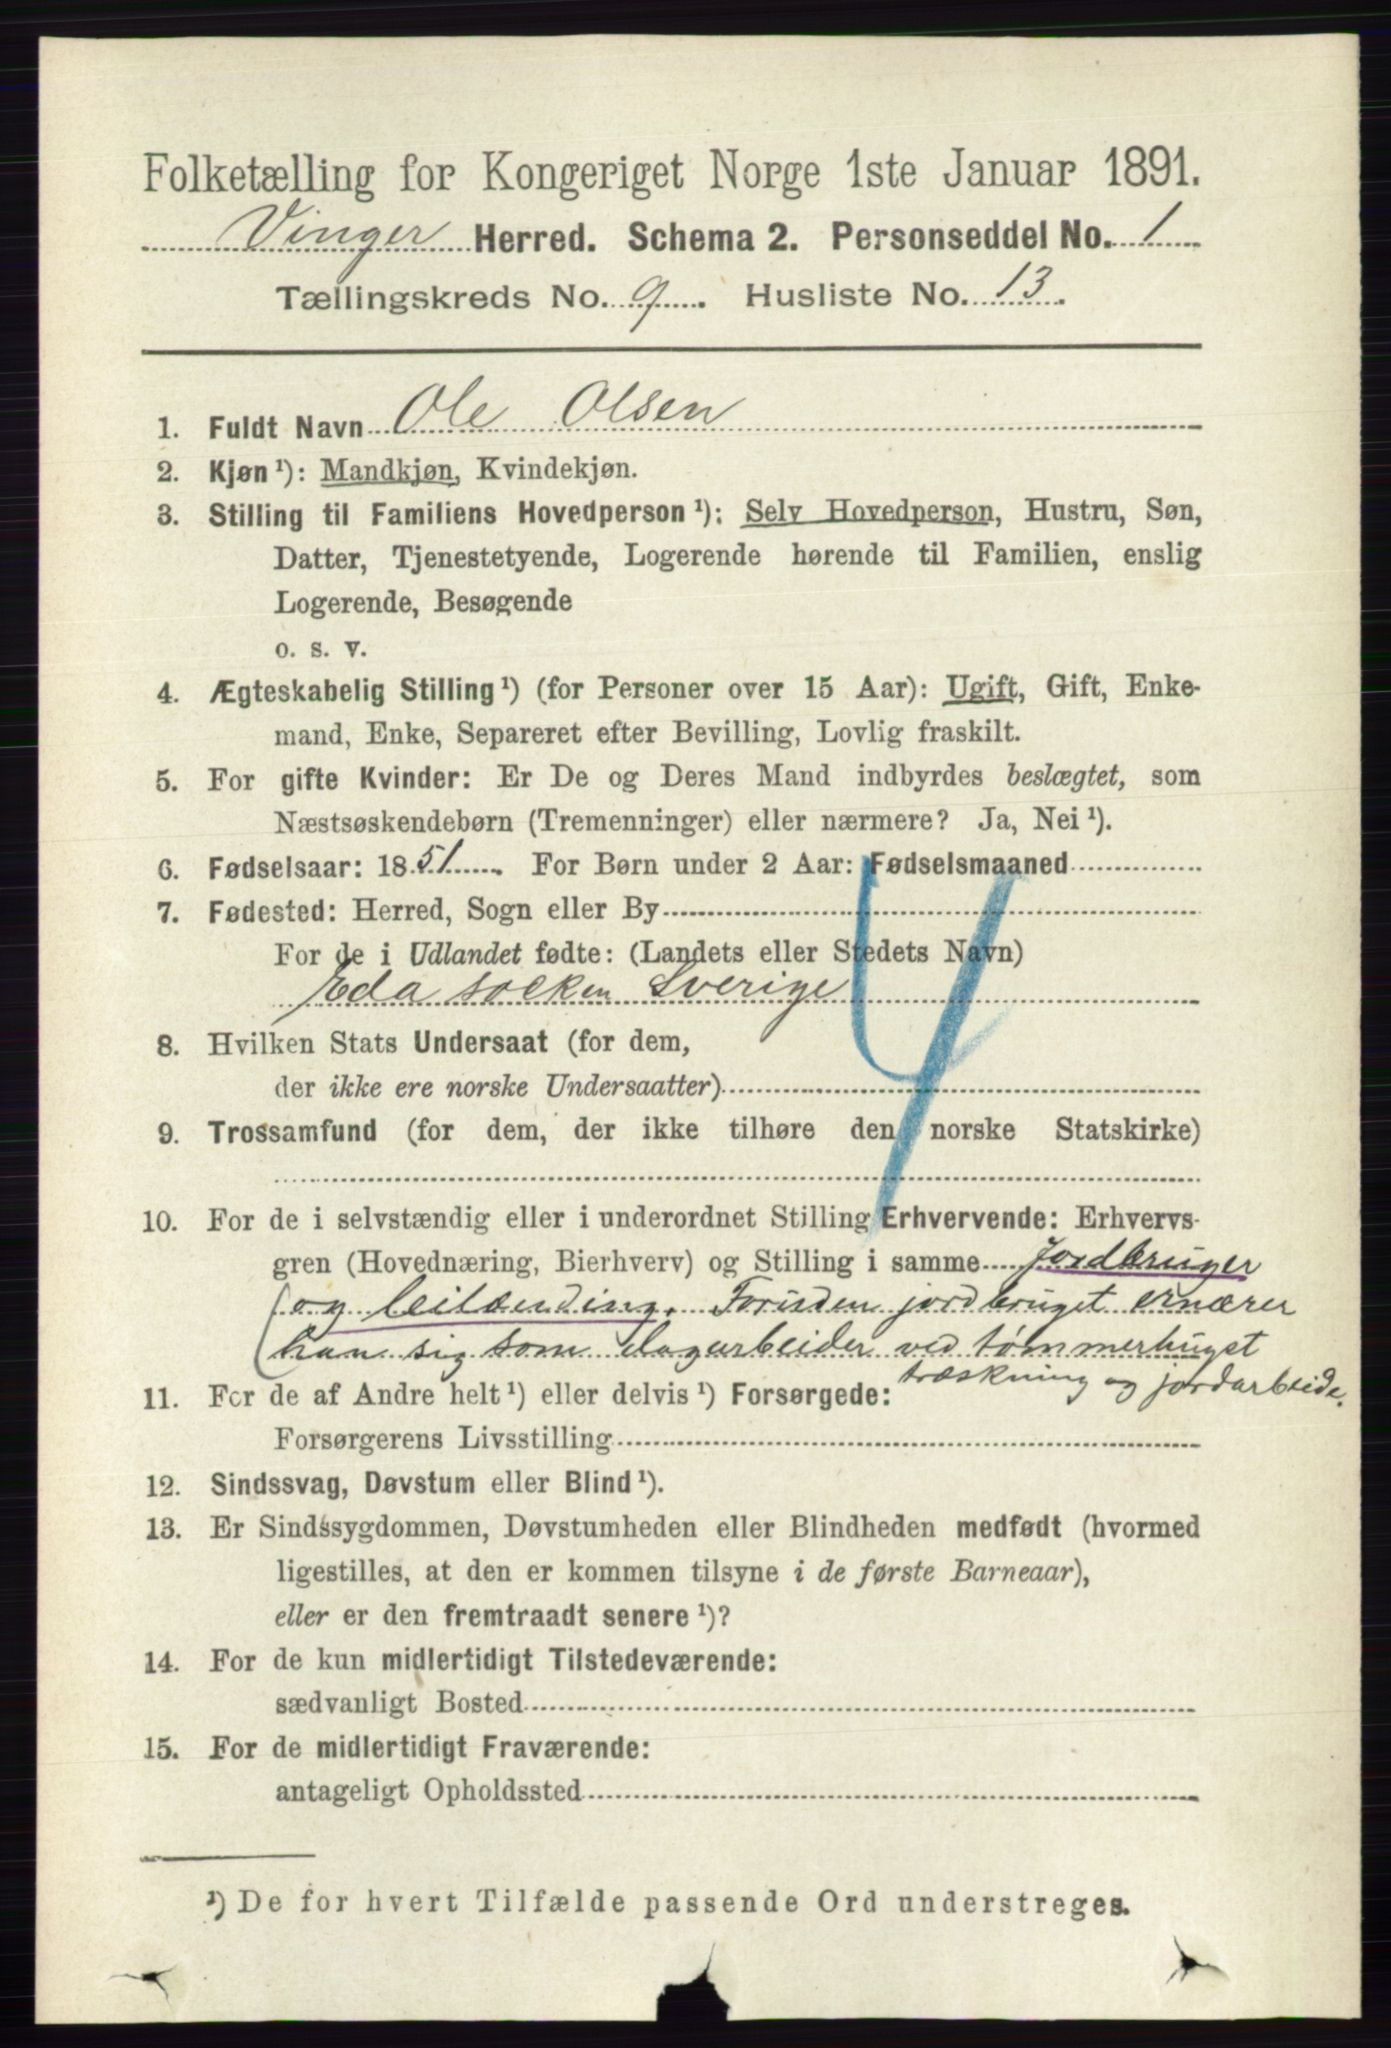 Folketælling for Kongeriget Norge 1ste Januar 1891.
Vinger Herred. Schema 2. Personseddel No. 1
Tællingskreds No. 9. Husliste No. 13.
1. Fuldt Navn Ole Olsen
2. Kjøn ¹): Mandkjøn, Kvindekjøn.
3. Stilling til Familiens Hovedperson ¹): Selv Hovedperson, Hustru, Søn,
Datter, Tjenestetyende, Logerende hørende til Familien, enslig
Logerende, Besøgende
o. s. v.
4. Ægteskabelig Stilling ¹) (for Personer over 15 Aar): Ugift, Gift, Enke-
mand, Enke, Separeret efter Bevilling, Lovlig fraskilt.
5. For gifte Kvinder: Er De og Deres Mand indbyrdes beslægtet, som
Næstsøskendebørn (Tremenninger) eller nærmere? Ja, Nei ¹).
6. Fødselsaar: 1851. For Børn under 2 Aar: Fødselsmaaned
7. Fødested: Herred, Sogn eller By
For de i Udlandet fødte: (Landets eller Stedets Navn)
Eda socken Sverige
8. Hvilken Stats Undersaat (for dem,
der ikke ere norske Undersaatter)
4
9. Trossamfund (for dem, der ikke tilhøre den norske Statskirke)
10. For de i selvstændig eller i underordnet Stilling Erhvervende: Erhvervs-
gren (Hovednæring, Bierhverv) og Stilling i samme Jordbruger
(og leilænding. Foruden jordbruget ernærer
han sig som dagarbeider ved tømmerhugst
træskning og jordarbeide.
11. For de af Andre helt ¹) eller delvis ¹) Forsørgede:
Forsørgerens Livsstilling
12. Sindssvag, Døvstum eller Blind ¹).
13. Er Sindssygdommen, Døvstumheden eller Blindheden medfødt (hvormed
ligestilles, at den er kommen tilsyne i de første Barneaar),
eller er den fremtraadt senere ¹)?
14. For de kun midlertidigt Tilstedeværende:
sædvanligt Bosted
15. For de midlertidigt Fraværende:
antageligt Opholdssted
¹) De for hvert Tilfælde passende Ord understreges.